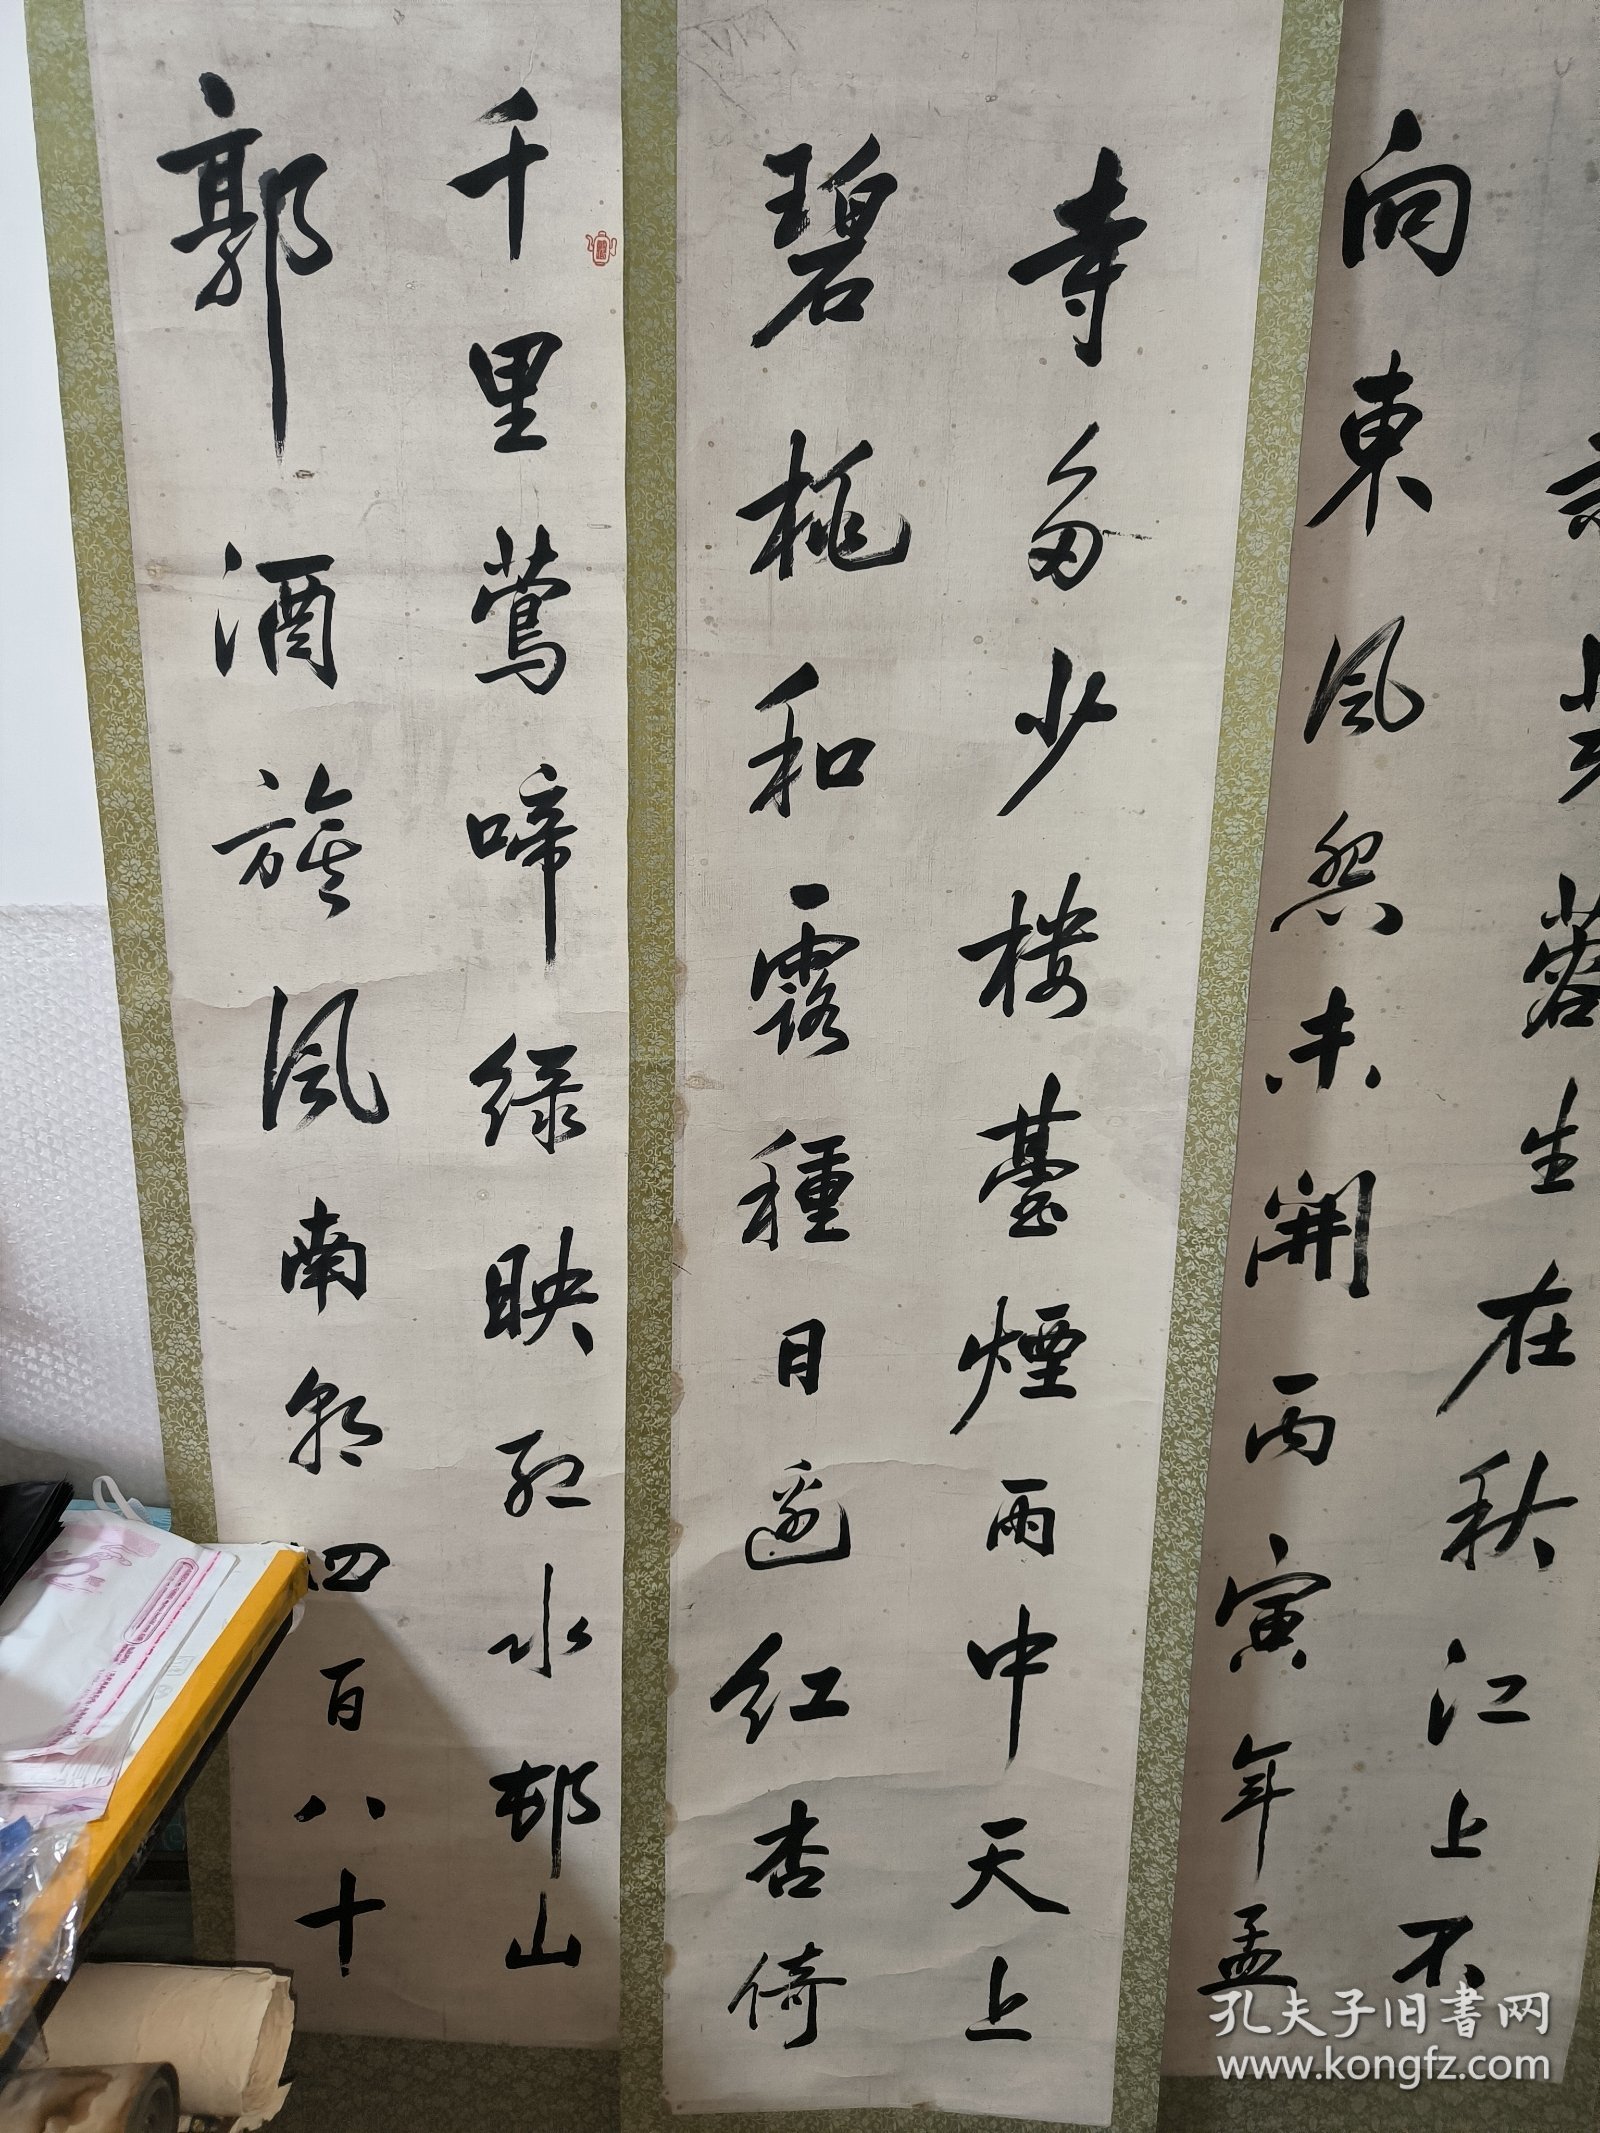 千里鶯啼綠映紅水村山
郭酒旗風南朝四百八十
寺多少樓臺煙雨中天上
碧桃和露種日邊紅杏倚
芙蓉生在秋江上不
向東風怨未開丙寅年孟
孔夫子旧書网
www.kongfz.com